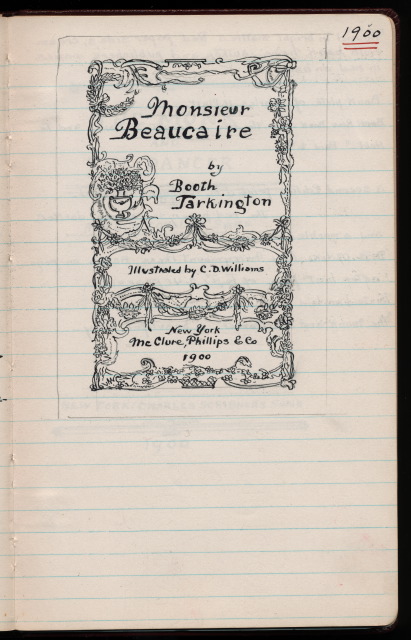 1900
Monsieur
Beaucaire
by
Booth
Tarkington
Illustrated by C. D. Williams
New York
McClure, Phillips & Co
1900